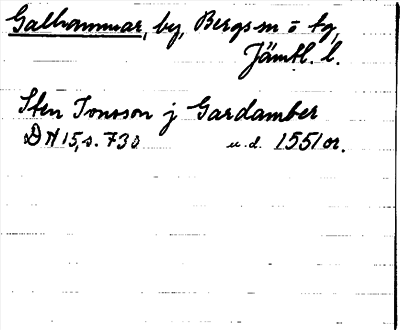 Galhammar, by, Bergs sn o tg,
Jämtl. l.
Sten Jonsson j Gardamber
DN 15, s. 730 u.d. 1551 or.